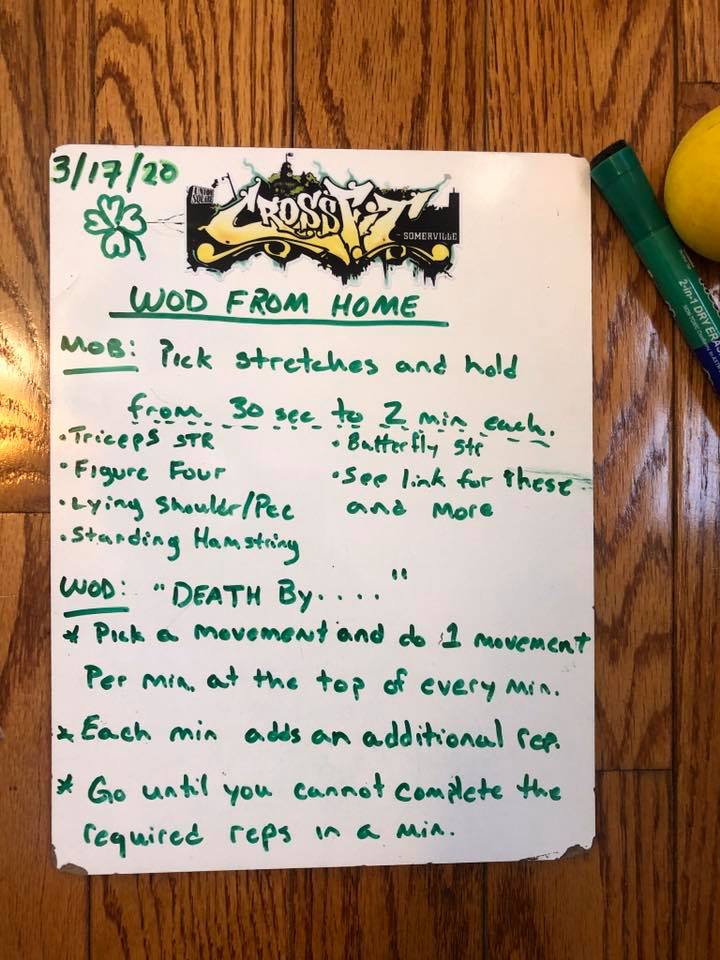 3/17/20
UNION
SQUARE
CROSSFIT
- SOMERVILLE
WOD FROM HOME
MOB: Pick stretches and hold
from 30 sec to 2 min each.
• Triceps STR
• Butterfly str
• Figure Four
• See link for these
• Lying Shouldr/Pec
and more
• Standing Hamstring
WOD: "DEATH By...."
* Pick a movement and do 1 movement
Per min. at the top of every min.
* Each min adds an additional rep.
* Go until you cannot complete the
required reps in a min.
2-in-1 DRY ERA